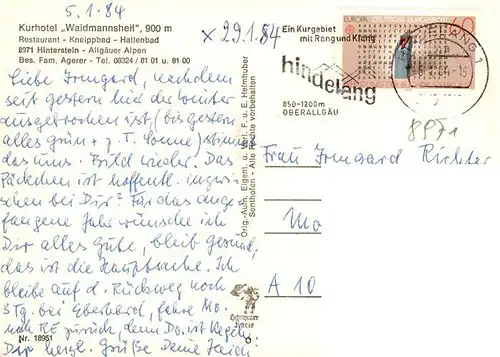 5.1.84
Kurhotel „Waldmannsheil“, 900 m
Restaurant - Kneippbad - Hallenbad
8971 Hinterstein - Allgäuer Alpen
Bes. Fam. Agerer - Tel. 08324 / 81 01 u. 81 00
x 29.1.84
Liebe Irmgard, nachdem
seit gestern hier der Winter
ausgebrochen ist, (bis gestern
alles grün + z. T. Sonne) stimmt
das uns. Bild wieder. Das
Päckchen ist hoffentl. inzwi-
schen bei Dir? Für das ange-
fangene Jahr wünsche ich
Dir alles Gute, bleib gesund,
das ist die Hauptsache. Ich
bleibe auf d. Rückweg noch
3 Tg. bei Eberhard, fahre Mo.
nach RE zurück, denn Do. ist Kegeln.
Dir herzl. Grüße Deine
Nr. 18951
Orig.-Aufn. Eigent. u. Verl. F. u. E. Heimhuber
Sonthofen - Alle Rechte vorbehalten
Heimhuber
Karte
Ein Kurgebiet
mit Rang und Klang
hindelang
850-1200m
OBERALLGÄU
EUROPA
60
8971
Frau Irmgard Richter
A 10